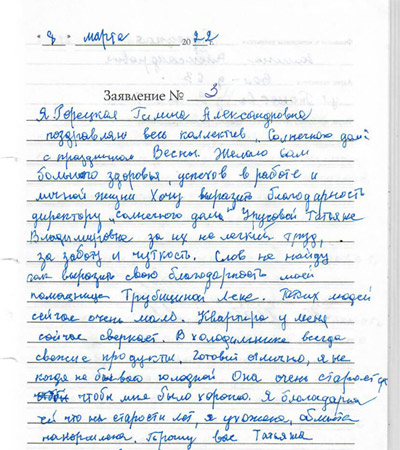 "8" марта 2022 г.
Заявление № 3
Я Горецкая Галина Александровна
поздравляю весь коллектив „Солнечного дома"
с праздником Весны. Желаю вам
большого здоровья, успехов в работе и
личной жизни Хочу выразить благодарность
директору „Солнечного дома" Татьяне
Владимировне за их не легкий труд,
за заботу и чуткость. Слов не найду
как выразить свою благодарность моей
помощнице Трубициной Лене. Таких людей
сейчас очень мало. Квартира у меня
сейчас сверкает. В холодильнике всегда
свежие продукты, готовит отлично, я не
когда не бываю голодной Она очень старается
чтобы мне было хорошо. Я благодарна
ей что на старости лет, я ухожена, обмыта
накормлена. Прошу вас Татьяна